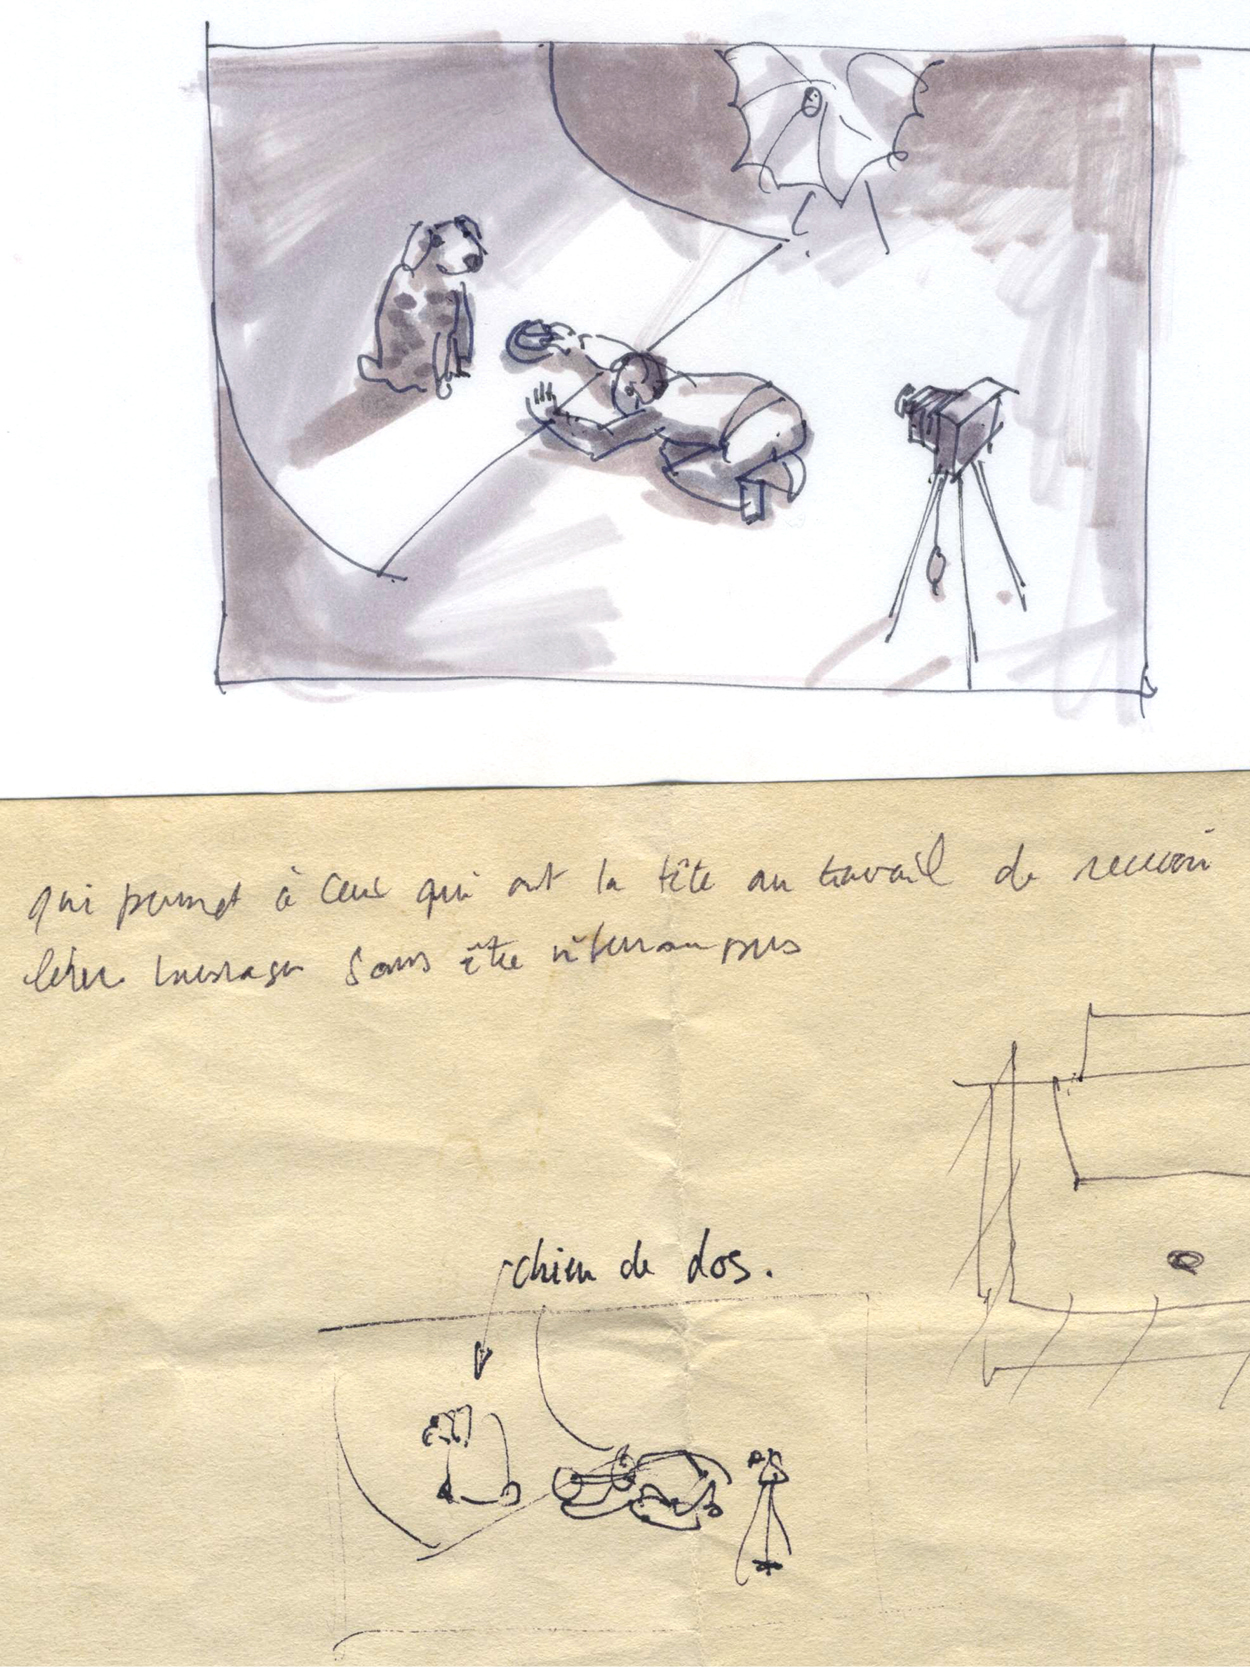 qui permet à ceux qui ont la tête au travail de recevoir
leurs messages sans être interrompus
chien de dos.